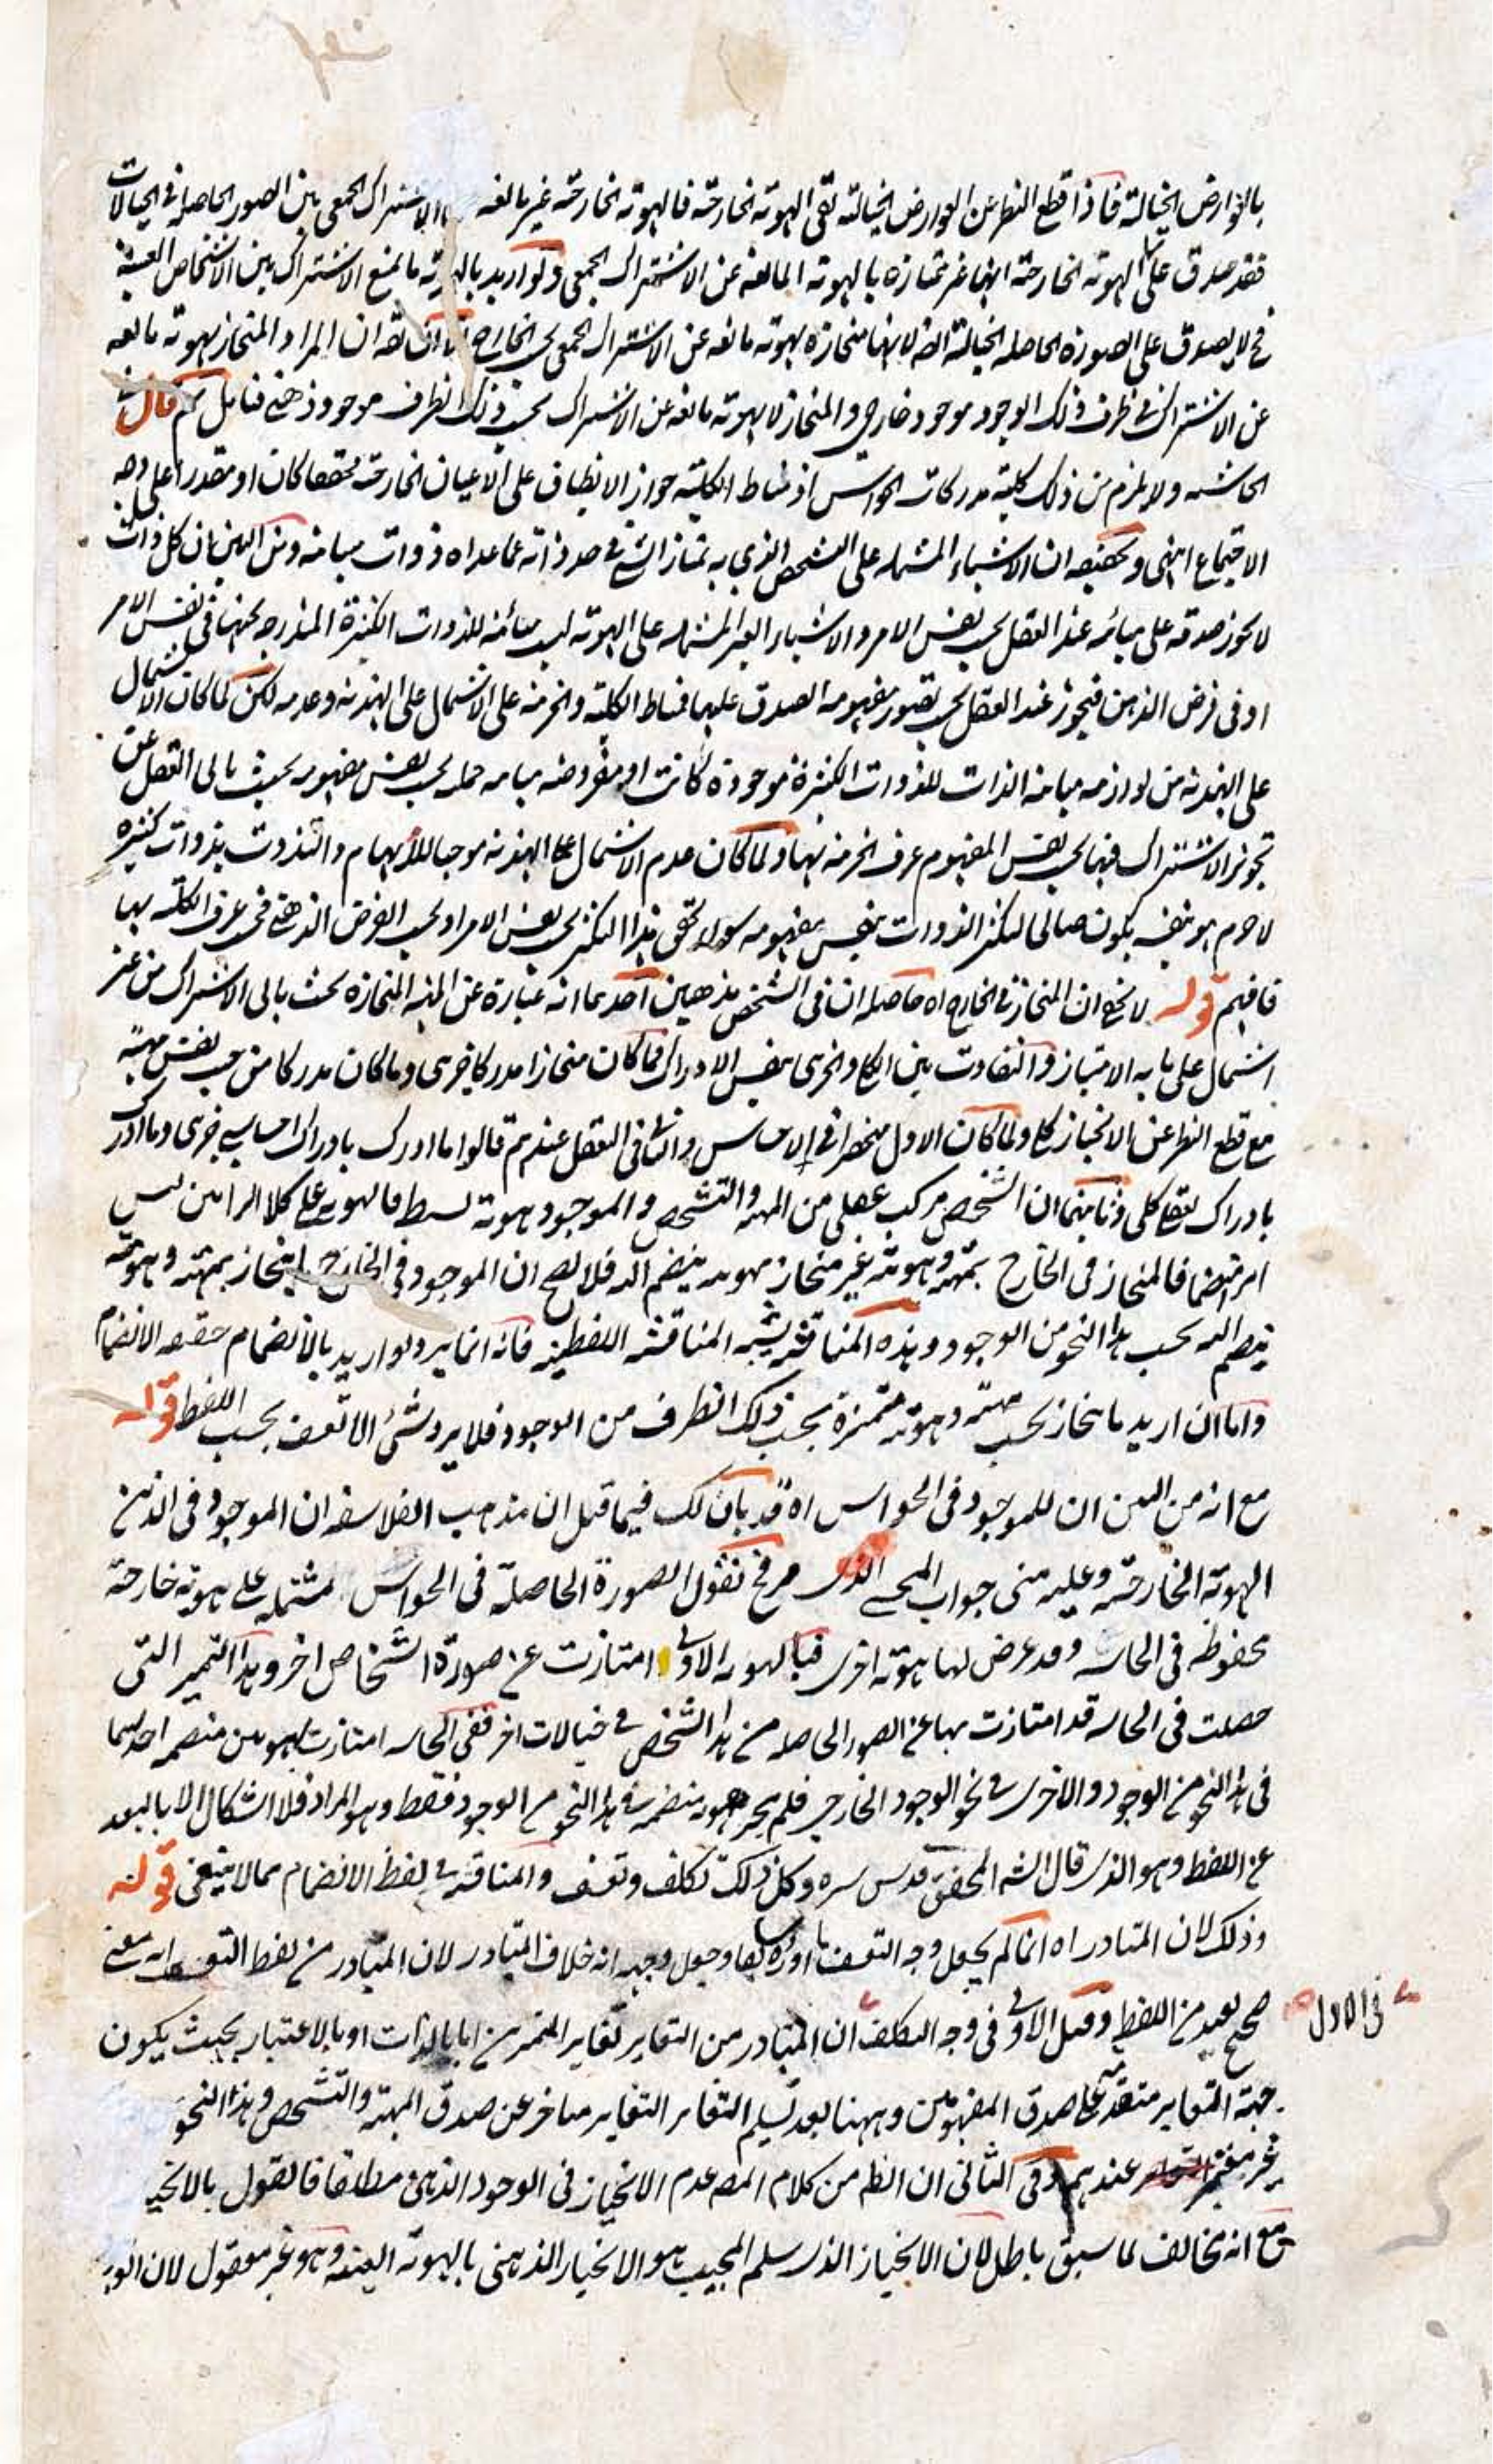 بالعوارض الخيالية فاذا قطع النظر عن العوارض الخيالية بقى الهوية الخارجية فالهوية الخارجية غير مانعة الاشتراك الجمعى بين الصور الحاصلة فى الخيالات
فقد صدق على الهوية الخارجية انها غير منحازة بالهوية المانعة عن الاشتراك الجمعى ولو اريد بالهوية ما يمنع الاشتراك بين الاشخاص العينية
فح لا يصدق على الصورة الحاصلة الخيالية لانها منحازة بهوية مانعة عن الاشتراك الجمعى بحسب الخارج ان المراد المنحاز بهوية مانعة
عن الاشتراك فى ظرف ذلك الوجود موجود خارجى والمنحاز لا بهوية مانعة عن الاشتراك بحسب ذلك الظرف موجود ذهنى فتامل ثم قال فى
الحاشية ولا يلزم من ذلك كلية مدركات الحواس اذ مناط الكلية جواز الانطباق على الاعيان الخارجية محققا كان او مقدرا على وجه
الاجتماع انتهى وتحقيقه ان الاشياء المشتملة على التشخص الذى به تمتاز الشئ فى حد ذاته عما عداه ذوات مباينة ومن البين ان كل ذات
لا يجوز صدقه على مباينه عند العقل بحسب نفس الامر والاشياء الغير المشتملة على الهوية ليست مباينة للذوات الكثيرة المندرجة تحتها فى نفس الامر
او فى فرض الذهن فيجوز عند العقل بحسب تصور مفهومه الصدق عليها فمناط الكلية والجزئية على الاشتمال على الهذية وعدمه لكن لما كان الاشتمال
على الهذية من لوازمه مباينة الذات للذوات الكثيرة موجودة كانت او مفروضة مباينة حمله بحسب نفس مفهومه بحيث يابى العقل عن
تجويز الاشتراك فيها بحسب نفس المفهوم عرف الجزئية بها ولما كان عدم الاشتمال على الهذية موجبا للابهام والتذوت بذوات كثيرة
لا جرم هو بنفسه يكون صالحا لتكثر الذوات بنفس مفهومه سواء تحقق هذا التكثر بحسب نفس الامر او بحسب الفرض الذهنى فعرف الكلية بها
فافهم قوله لا يخفى ان المنحاز فى الخارج اه حاصله ان فى الشخص مذهبين احدهما انه عبارة عن المهية المنحازة بحيث يابى الاشتراك من غير
اشتمال على ما به الامتياز والتفاوت بين الكلى والجزئى بنفس الادراك فما كان منحازا مدركا جزئى وما كان مدركا من حيث نفس مهيته
مع قطع النظر عن الانحياز كلى ولما كان الاول منحصرا فى الاحساس والثانى فى التعقل عندهم قالوا ما ادرك بادراك احساسى جزئى وما ادرك
بادراك تعقلى كلى وثانيهما ان الشخص مركب عقلى من المهية والتشخص والموجود هوية بسيطة فالهوية على كلا الرايين ليس
امرا منضما فالمنحاز فى الخارج بمهيته وهويته غير منحاز بهوية ينضم اليه فلا يصح ان الموجود فى الخارج ينحاز بمهيته وهويته
ينضم اليه بحسب هذا النحو من الوجود وهذه المناقشة يشبه المناقشة اللفظية فانه انما يرد لو اريد بالانضمام حقيقة الانضمام
واما ان اريد ما ينحاز بحسب مهيته وهوية متميزة بحسب ذلك الظرف من الوجود فلا يرد شئ الا تعسف بحسب اللفظ قوله
مع انه من البين ان للموجود فى الحواس اه قد بان لك فيما قبل ان مذهب الفلاسفة ان الموجود فى الذهن
الهوية الخارجية وعليه مبنى جواب المحشى الذى مر فح نقول الصورة الحاصلة فى الحواس مشتملة على هوية خارجة
محفوظة فى الحاسة وقد عرض لها هوية اخرى فبالهوية الاولى امتازت عن صورة اشخاص اخر وبهذا التميز التى
حصلت فى الحاسة قد امتازت بها عن الصور الحاصلة من هذا الشخص فى خيالات اخر ففى الحاسة امتازت بهويتين منضمة احدهما
فى هذا النحو من الوجود والاخرى فى نحو الوجود الخارجى فلم يحز هوية منضمة فى هذا النحو من الوجود فقط وهو المراد فلا اشكال الا بالبعد
عن اللفظ وهو الذى قال الشه المحقق قدس سره وكل ذلك تكلف وتعسف والمناقشة فى لفظ الانضمام مما لا ينبغى قوله
وذلك لان المتبادر اه انما لم يجعل وجه التعسف ما اورده سابقا وجعل وجهه انه خلاف المتبادر لان المتبادر من لفظ التعسف انه معنى
صحيح بعيد من اللفظ وقيل الاولى فى وجه التكلف ان المتبادر من التغاير تغاير المتغايرين اما بالذات او بالاعتبار بحيث يكون
فى الاول
جهة التغاير متقدمة على صدق المفهومين وههنا بعد تسليم التغاير التغاير متاخر عن صدق المهية والتشخص وهذا النحو
غير معتبر عندهم وفى الثانى ان الظ من كلام المصه عدم الانحياز فى الوجود الذهنى مطلقا فالقول بالانحياز
مع انه مخالف لما سبق باطل لان الانحياز الذى سلم المجيب هو الانحياز الذهنى بالهوية العينية وهو غير معقول لان الوجود